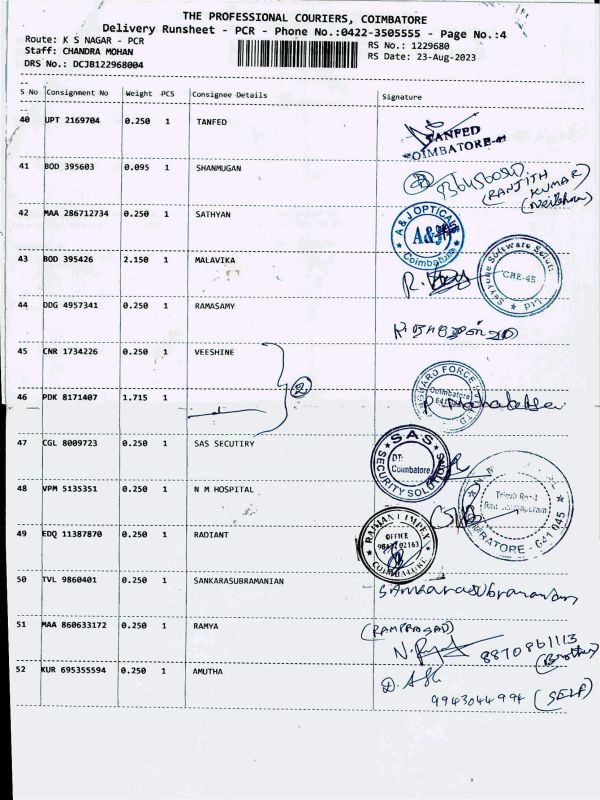 THE PROFESSIONAL COURIERS, COIMBATORE
Delivery Runsheet - PCR - Phone No.:0422-3505555 - Page No.:4
Route: K S NAGAR - PCR
Staff: CHANDRA MOHAN
DRS No.: DCJB122968004
RS No.: 1229680
RS Date: 23-Aug-2023
S No Consignment No Weight PCS Consignee Details Signature
40 UPT 2169704 0.250 1 TANFED
TANFED
COIMBATORE-41
41 BOD 395603 0.095 1 SHANMUGAN
(RANJITH
KUMAR)
42 MAA 286712734 0.250 1 SATHYAN
A & J OPTICALS
A&J
Coimbatore
43 BOD 395426 2.150 1 MALAVIKA
CBE-45
44 DDG 4957341 0.250 1 RAMASAMY
45 CNR 1734226 0.250 1 VEESHINE
2
46 PDK 8171407 1.715 1
Coimbatore
47 CGL 8009723 0.250 1 SAS SECUTIRY
SAS
SECURITY SOLUTIONS
Coimbatore
48 VPM 5135351 0.250 1 N M HOSPITAL
COIMBATORE - 641 045
49 EDQ 11387870 0.250 1 RADIANT
RADIANT IMPEX
OFFICE
COIMBATORE
50 TVL 9860401 0.250 1 SANKARASUBRAMANIAN
Sankarasubramaniam
51 MAA 860633172 0.250 1 RAMYA
(RAMPRASAD)
8870861113
(Brother)
52 KUR 695355594 0.250 1 AMUTHA
9943044994 (SELF)